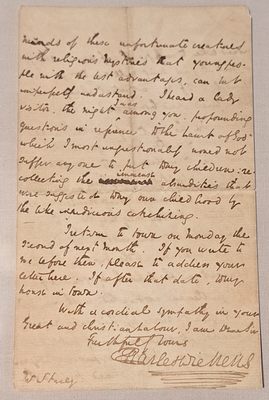 minds of these unfortunate creatures
with religious mysteries that young peo-
ple with the best advantages, can but
imperfectly understand. I heard a lady
visitor, the night I was among you, propounding
questions in reference to "the Lamb of God"
which I most unquestionably would not
suffer any one to put to my children: re-
collecting the immense absurdities that
were suggested to my own childhood by
the like injudicious catechising.
I return to town on Monday, the
second of next month. If you write to
me before then, please to address your
letter here. If after that date, to my
house in town.
With a cordial sympathy in your
great and christian labour, I am Dear Sir
Faithfully Yours
Charles Dickens
Mr Starey